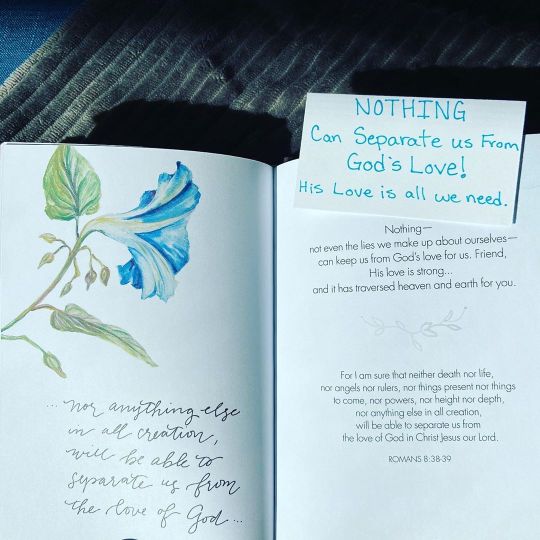 NOTHING
Can Separate us From
God's Love!
His Love is all we need.
... nor anything else
in all creation,
will be able to
separate us from
the love of God...
Nothing—
not even the lies we make up about ourselves—
can keep us from God's love for us. Friend,
His love is strong...
and it has traversed heaven and earth for you.
For I am sure that neither death nor life,
nor angels nor rulers, nor things present nor things
to come, nor powers, nor height nor depth,
nor anything else in all creation,
will be able to separate us from
the love of God in Christ Jesus our Lord.
ROMANS 8:38-39